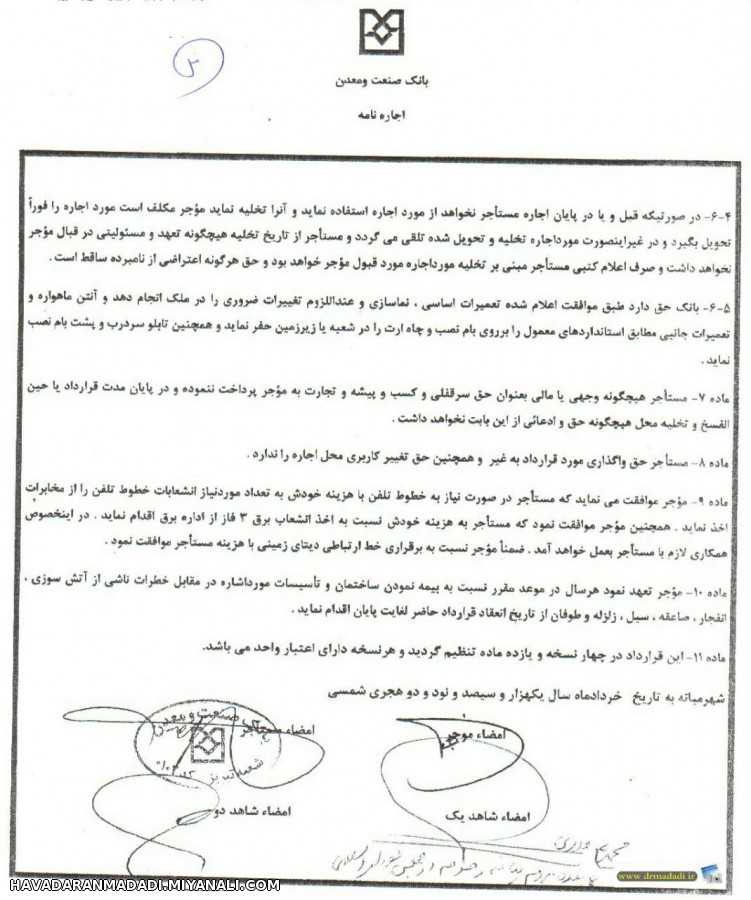 ۲
بانک صنعت ومعدن
اجاره نامه
۶-۴- در صورتیکه قبل و یا در پایان اجاره مستأجر نخواهد از مورد اجاره استفاده نماید و آنرا تخلیه نماید مؤجر مکلف است مورد اجاره را فوراً
تحویل بگیرد و در غیراینصورت مورداجاره تخلیه و تحویل شده تلقی می گردد و مستأجر از تاریخ تخلیه هیچگونه تعهد و مسئولیتی در قبال مؤجر
نخواهد داشت و صرف اعلام کتبی مستأجر مبنی بر تخلیه مورداجاره مورد قبول مؤجر خواهد بود و حق هرگونه اعتراضی از نامبرده ساقط است .
۶-۵- بانک حق دارد طبق موافقت اعلام شده تعمیرات اساسی ، نماسازی و عنداللزوم تغییرات ضروری را در ملک انجام دهد و آنتن ماهواره و
تعمیرات جانبی مطابق استانداردهای معمول را برروی بام نصب و چاه ارت را در شعبه یا زیرزمین حفر نماید و همچنین تابلو سردرب و پشت بام نصب
نماید .
ماده ۷- مستأجر هیچگونه وجهی یا مالی بعنوان حق سرقفلی و کسب و پیشه و تجارت به مؤجر پرداخت ننموده و در پایان مدت قرارداد یا حین
الفسخ و تخلیه محل هیچگونه حق و ادعائی از این بابت نخواهد داشت .
ماده ۸- مستأجر حق واگذاری مورد قرارداد به غیر و همچنین حق تغییر کاربری محل اجاره را ندارد .
ماده ۹- مؤجر موافقت می نماید که مستأجر در صورت نیاز به خطوط تلفن با هزینه خودش به تعداد موردنیاز انشعابات خطوط تلفن را از مخابرات
اخذ نماید . همچنین مؤجر موافقت نمود که مستأجر به هزینه خودش نسبت به اخذ انشعاب برق ۳ فاز از اداره برق اقدام نماید . در اینخصوص
همکاری لازم با مستأجر بعمل خواهد آمد . ضمناً مؤجر نسبت به برقراری خط ارتباطی دیتای زمینی با هزینه مستأجر موافقت نمود .
ماده ۱۰- مؤجر تعهد نمود هرسال در موعد مقرر نسبت به بیمه نمودن ساختمان و تأسیسات مورداشاره در مقابل خطرات ناشی از آتش سوزی ،
انفجار ، صاعقه ، سیل ، زلزله و طوفان از تاریخ انعقاد قرارداد حاضر لغایت پایان اقدام نماید .
ماده ۱۱- این قرارداد در چهار نسخه و یازده ماده تنظیم گردید و هرنسخه دارای اعتبار واحد می باشد.
شهرمیانه به تاریخ خردادماه سال یکهزار و سیصد و نود و دو هجری شمسی
امضاء موجر
امضاء مستأجر
بانک صنعت و معدن
شعبه تبریز
امضاء شاهد یک
امضاء شاهد دو
www.drmadadi.ir
HAVADARANMADADI.MIYANALI.COM